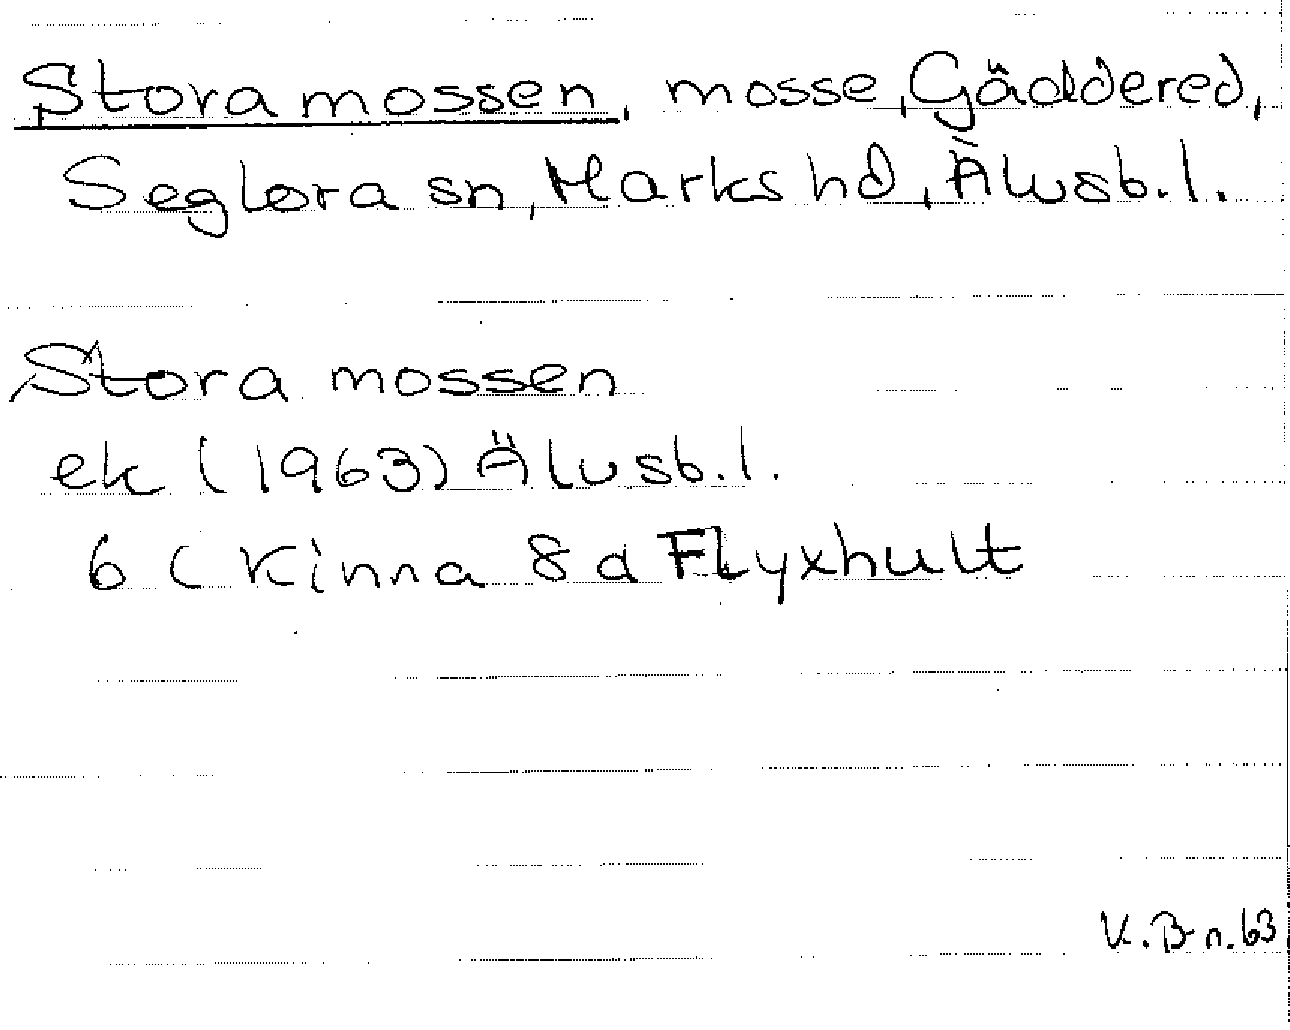 Stora mossen, mosse, Gäddered,
Seglora sn, Marks hd, Älvsb.l.
Stora mossen
ek (1963) Älvsb.l.
6 C Kinna 8 d Flyxhult
K.B-n.63